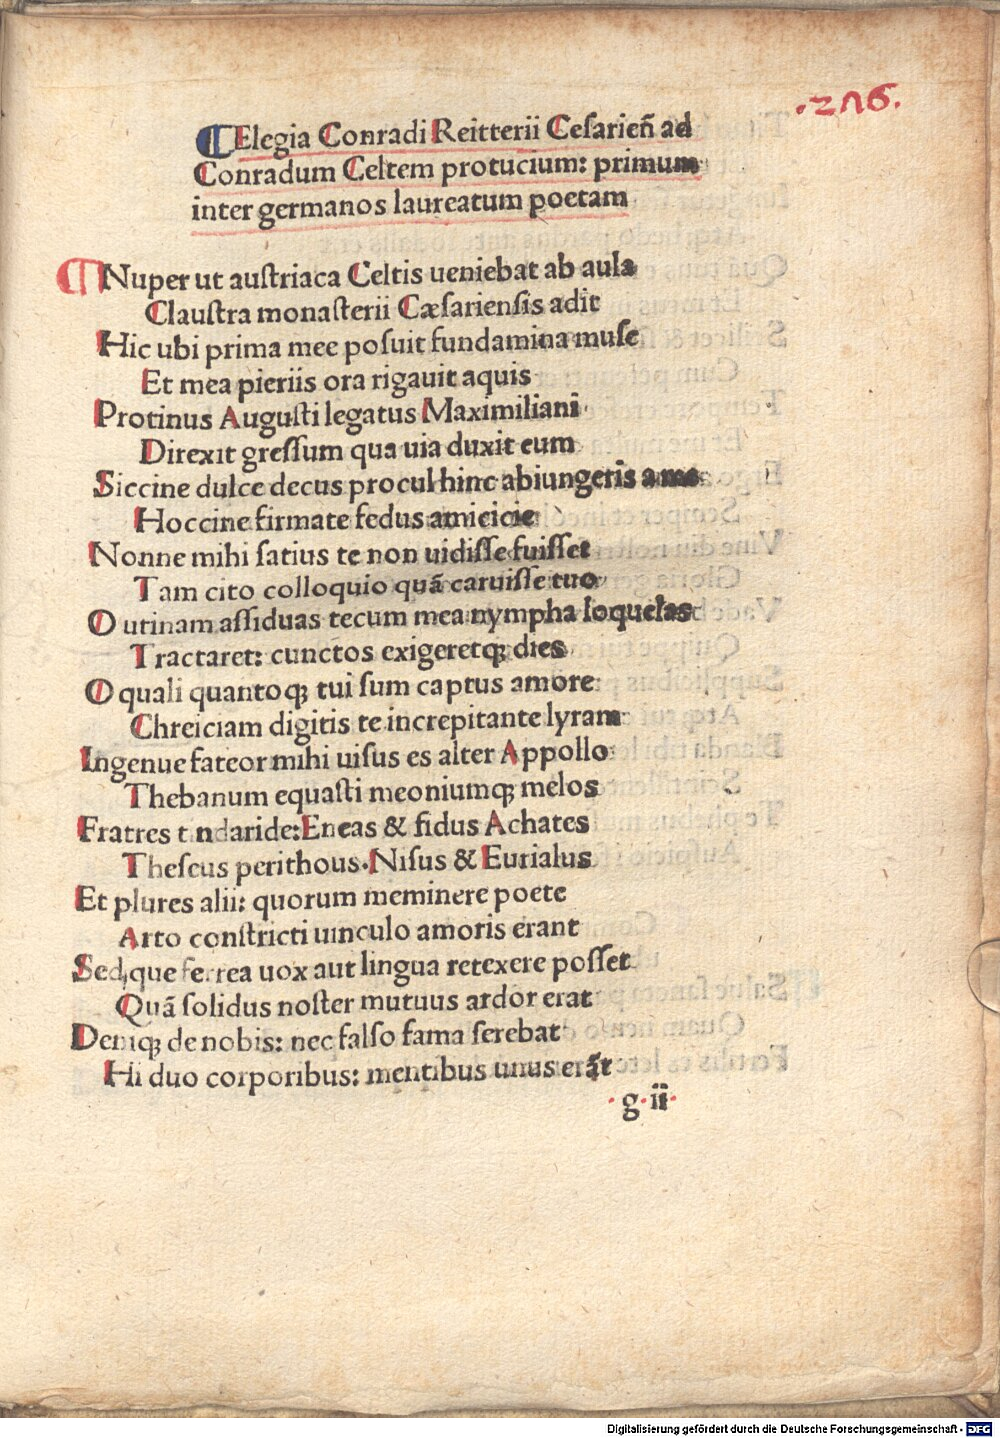 .206.
Elegia Conradi Reitterii Cesarien̄ ad
Conradum Celtem protucium: primum
inter germanos laureatum poetam
Nuper ut auſtriaca Celtis ueniebat ab aula
Clauſtra monaſterii Cæſarienſis adit
Hic ubi prima mee poſuit fundamina muſe
Et mea pieriis ora rigauit aquis
Protinus Auguſti legatus Maximiliani
Direxit greſſum qua uia duxit eum
Siccine dulce decus procul hinc abiungeris a me
Hoccine firmate fedus amicicie
Nonne mihi ſatius te non uidiſſe fuiſſet
Tam cito colloquio quā caruiſſe tuo
O utinam aſſiduas tecum mea nympha loquelas
Tractaret: cunctos exigeretqꝫ dies
O quali quantoqꝫ tui ſum captus amore
Chreiciam digitis te increpitante lyram
Ingenue fateor mihi uiſus es alter Appollo
Thebanum equaſti meoniumqꝫ melos
Fratres tndaride: Eneas & fidus Achates
Theſeus perithous. Niſus & Eurialus
Et plures alii: quorum meminere poete
Arto conſtricti uinculo amoris erant
Sed que ferrea uox aut lingua retexere poſſet
Quā ſolidus noſter mutuus ardor erat
Deniqꝫ de nobis: nec falſo fama ferebat
Hi duo corporibus: mentibus unus erāt
.g.ii.
Digitalisierung gefördert durch die Deutsche Forschungsgemeinschaft - DFG